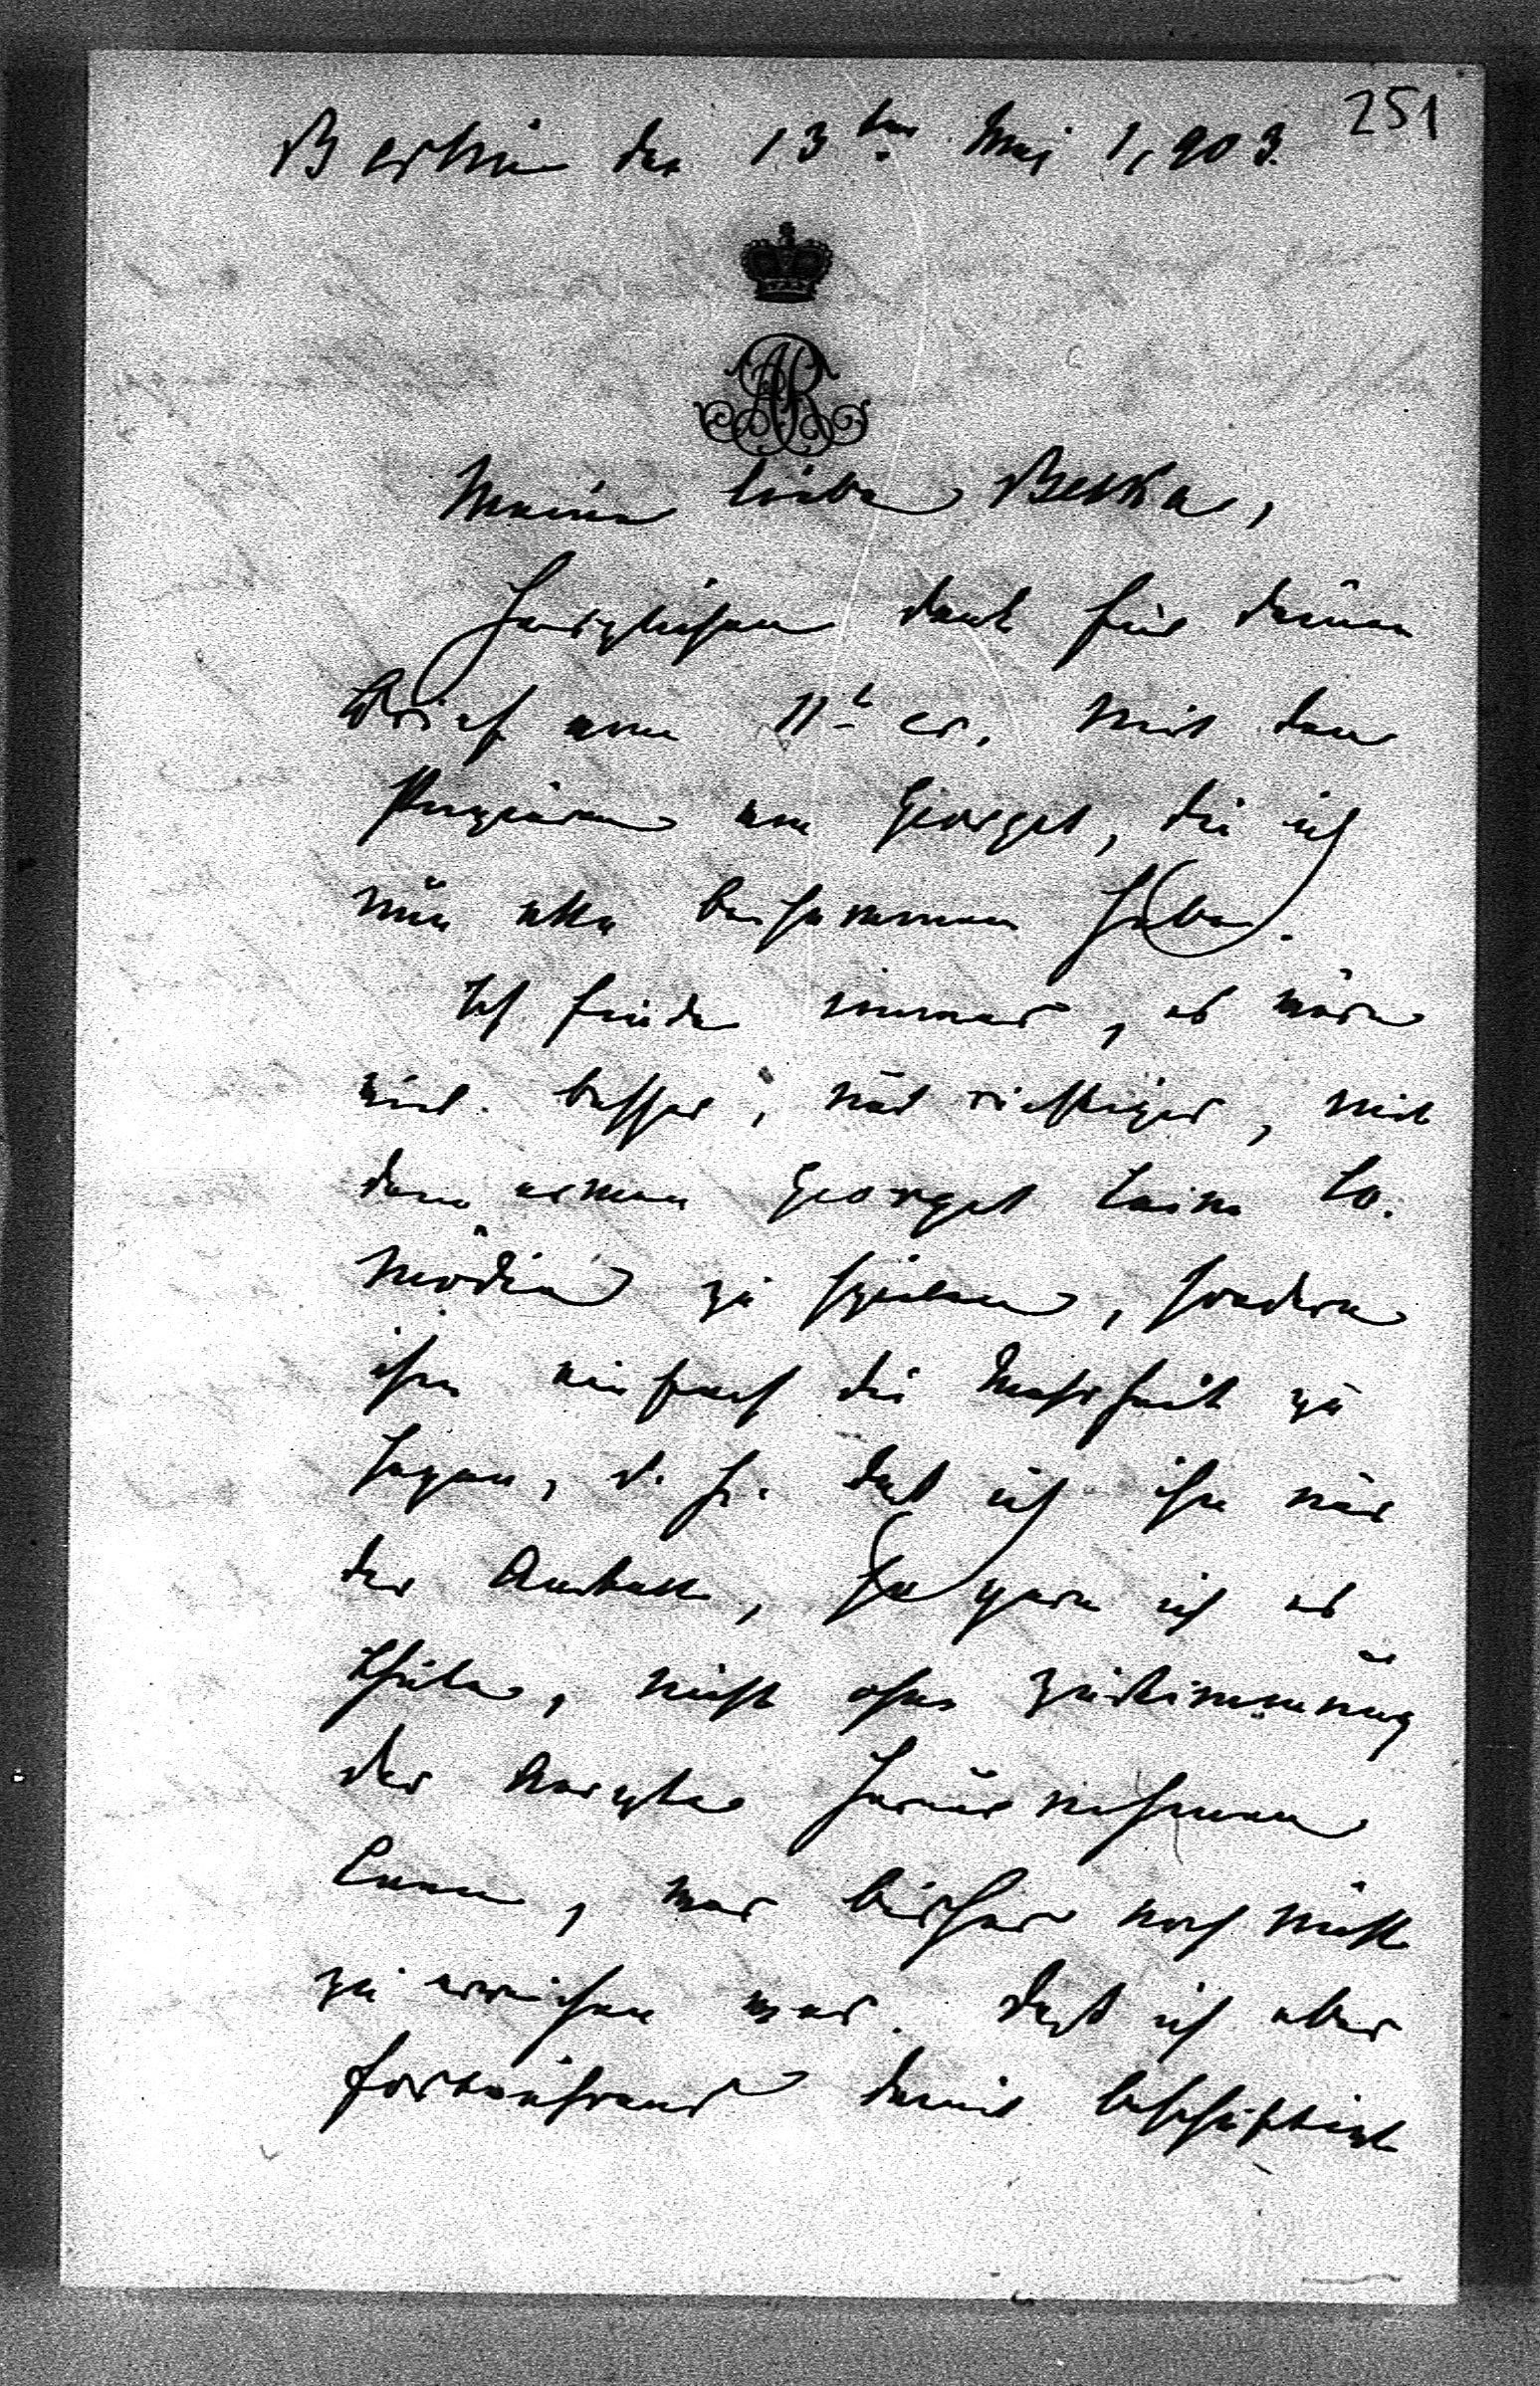 251
Berlin den 13ten Mai 1,903.
AR
Meine liebe Bekka,
Herzlichen Dank für Deinen
Brief vom 11t cr. mit den
Papieren von Georges, die ich
nun alle beisammen habe.
Ich finde immer, es wäre
viel besser, und richtiger, mit
dem armen Georges keine Co-
mödie zu spielen, sondern
ihm einfach die Wahrheit zu
sagen, d. h. daß ich ihn aus
der Anstalt, so gern ich es
thäte, nicht ohne Zustimmung
der Aerzte herausnehmen
kann, was bisher noch nicht
zu erreichen war. Daß ich aber
fortwährend damit beschäftigt